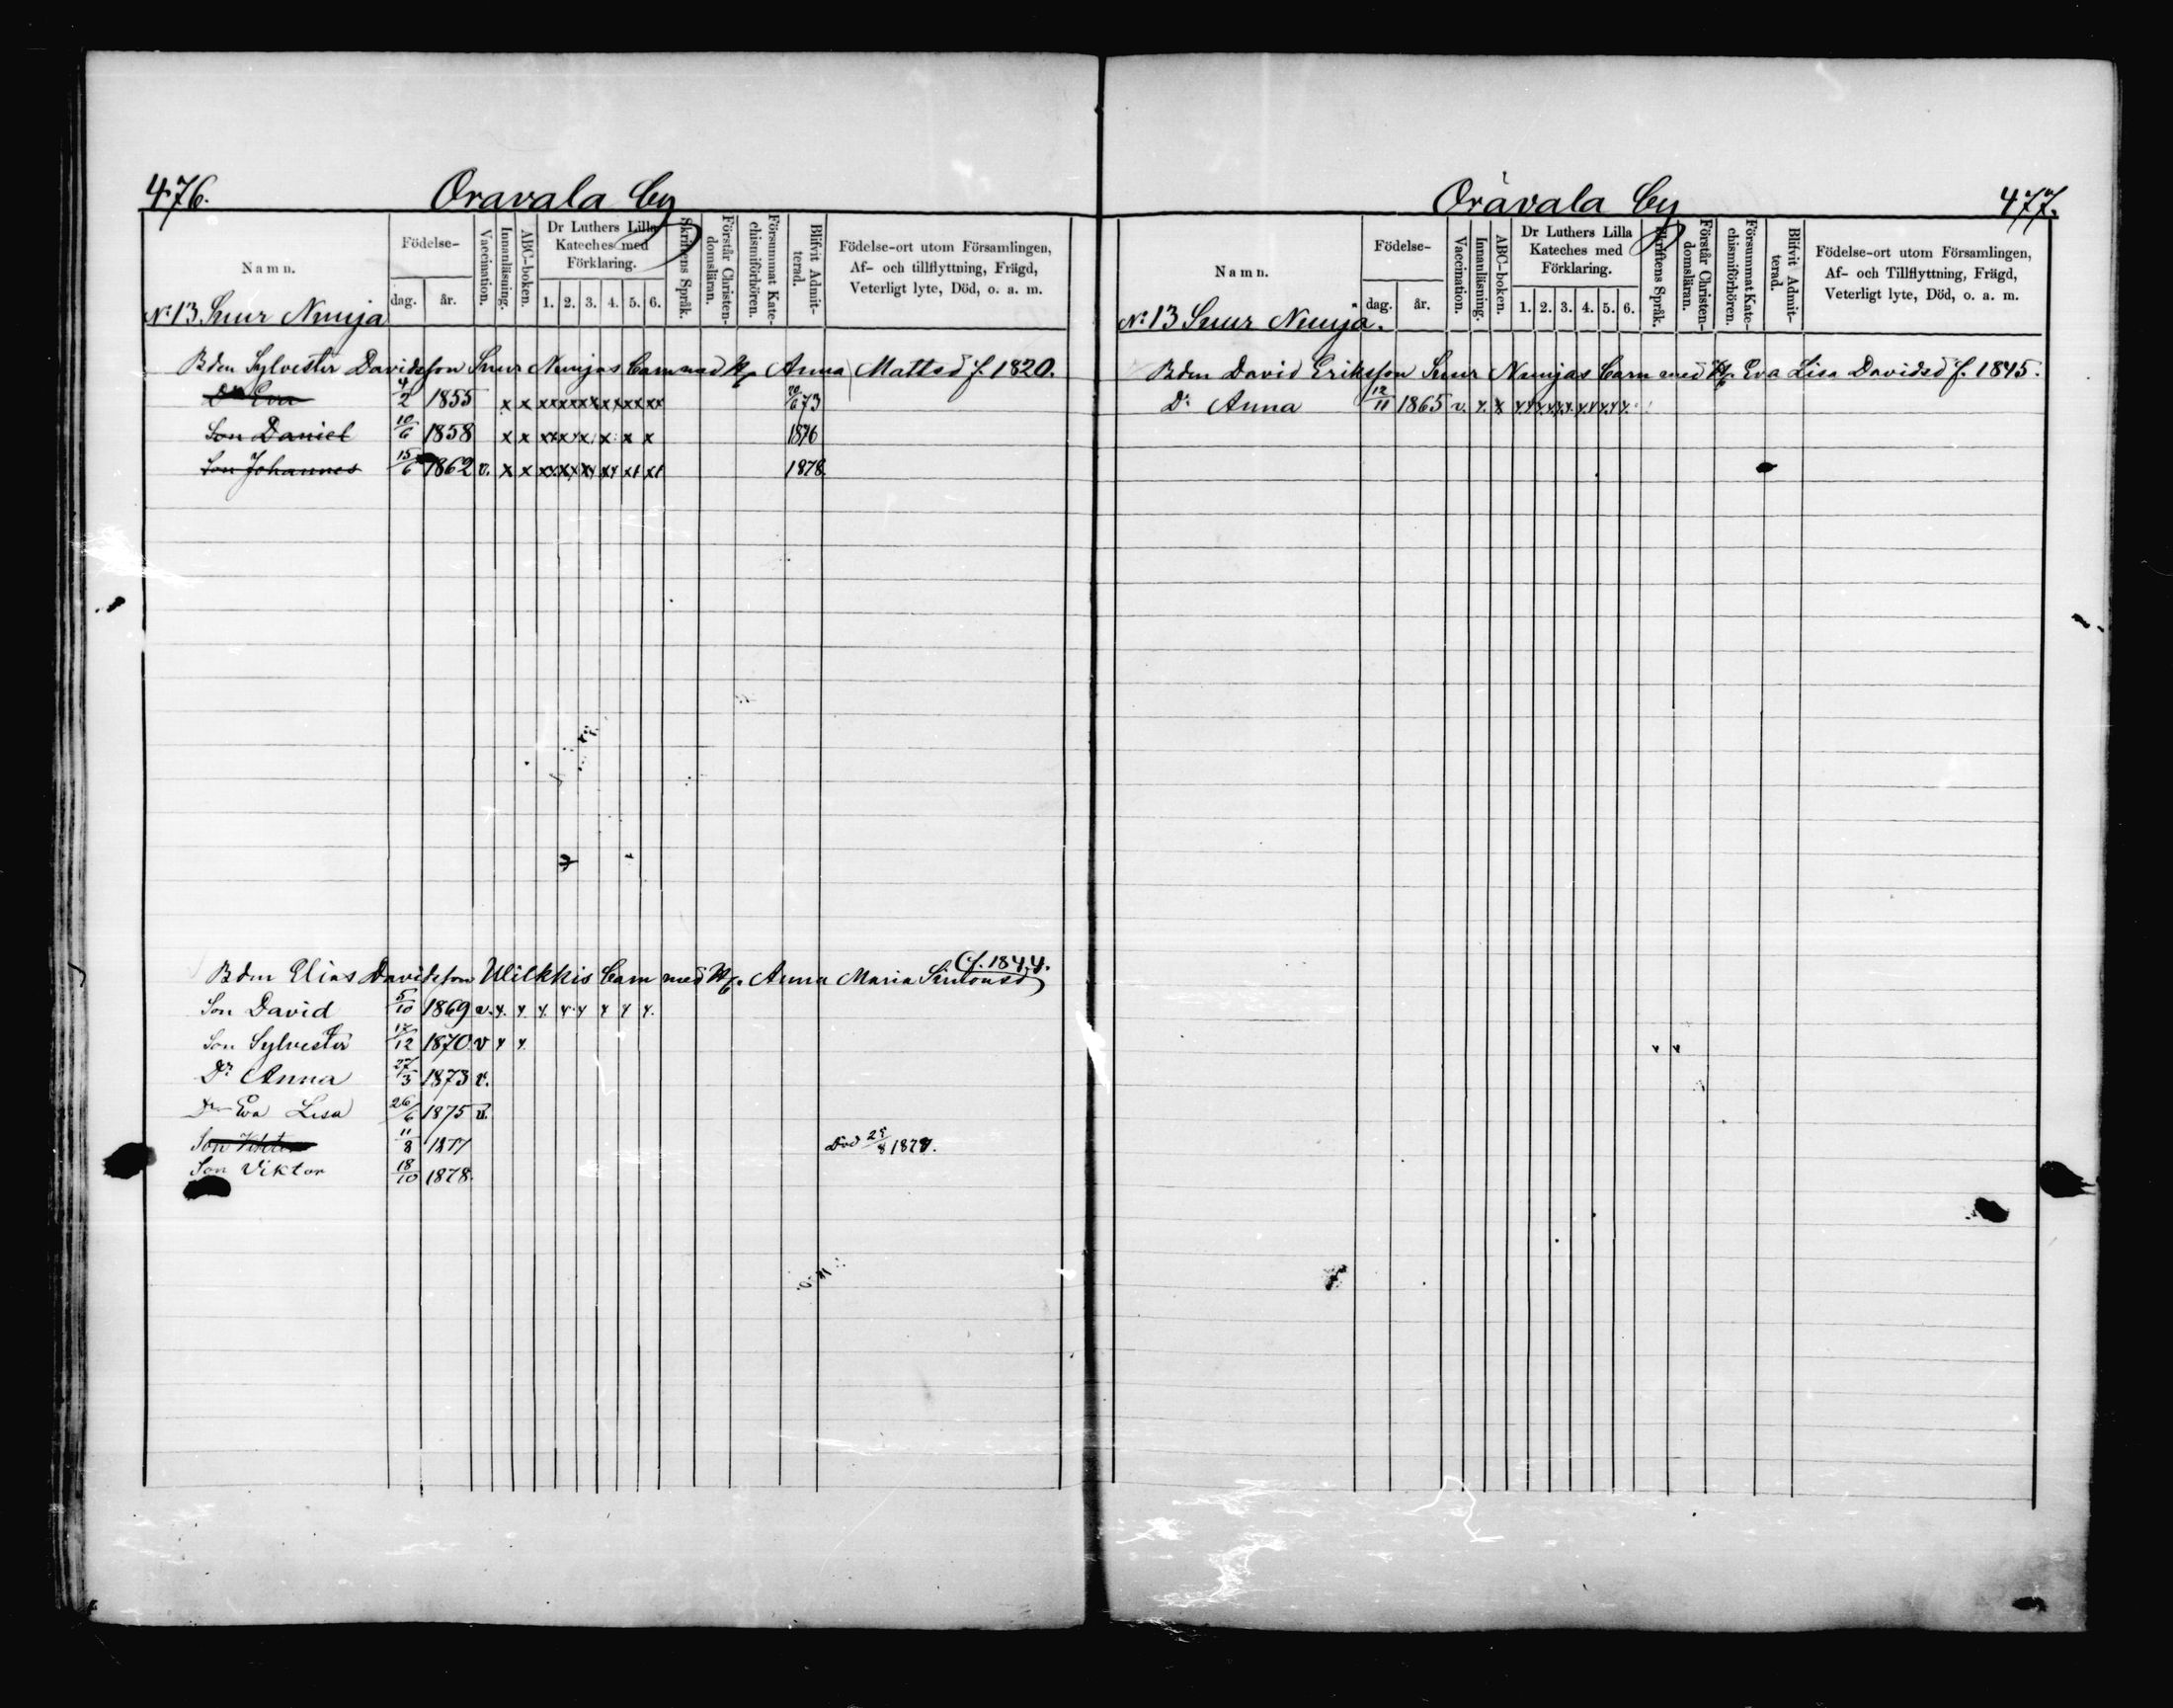 476. Oravala by
Namn. Födelse- dag. år. Vaccination. Innanläsning. ABC-boken. Dr Luthers Lilla Kateches med Förklaring. 1. 2. 3. 4. 5. 6. Skriftens Språk. Förstår Christen-domsläran. Försummat Kate-chismiförhören. Blifvit Admit-terad. Födelse-ort utom Församlingen, Af- och tillflyttning, Frägd, Veterligt lyte, Död, o. a. m.
No 13 Suur Nuuja
Bden Sylvester Davidsson Suur Nuujas barn med H. Anna Mattsd f. 1820.
Dr Eva 4/2 1855 x x xx xx xx xx xx xx 20/6 73
Son Daniel 10/6 1858 x x xx x x x x x 1876
Son Johannes 15/6 1862 v. x x xx xx xx xx x1 x1 1878
Bden Elias Davidsson Wilkkis barn med H. Anna Maria Simonsd f. 1844.
Son David 5/10 1869 v. x. x. x x x x x x.
Son Sylvester 17/12 1870 v x x.
Dr Anna 27/3 1873 v.
Dr Eva Lisa 26/6 1875 v.
Son Viktor 11/8 1877 Död 25/8 1877.
Son Viktor 18/10 1878.
Oravala by 477.
Namn. Födelse- dag. år. Vaccination. Innanläsning. ABC-boken. Dr Luthers Lilla Kateches med Förklaring. 1. 2. 3. 4. 5. 6. Skriftens Språk. Förstår Christen-domsläran. Försummat Kate-chismiförhören. Blifvit Admit-terad. Födelse-ort utom Församlingen, Af- och Tillflyttning, Frägd, Veterligt lyte, Död, o. a. m.
No 13 Suur Nuuja.
Bden David Eriksson Suur Nuujas barn med H. Eva Lisa Davidsd f. 1845.
Dr Anna 12/11 1865 v. x. x xx xx xx xx xx x.